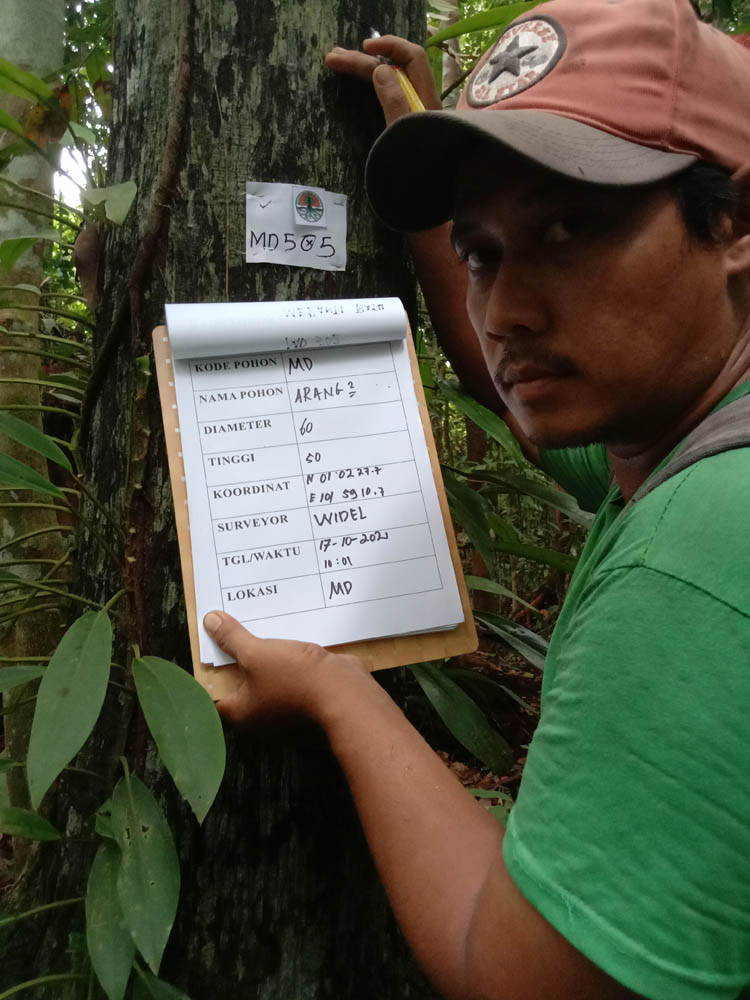 MD505
KODE POHON MD
NAMA POHON ARANG2
DIAMETER 60
TINGGI 50
KOORDINAT N 01 02 27.7
E 101 59 10.7
SURVEYOR WIDEL
TGL/WAKTU 17-10-202
10:01
LOKASI MD